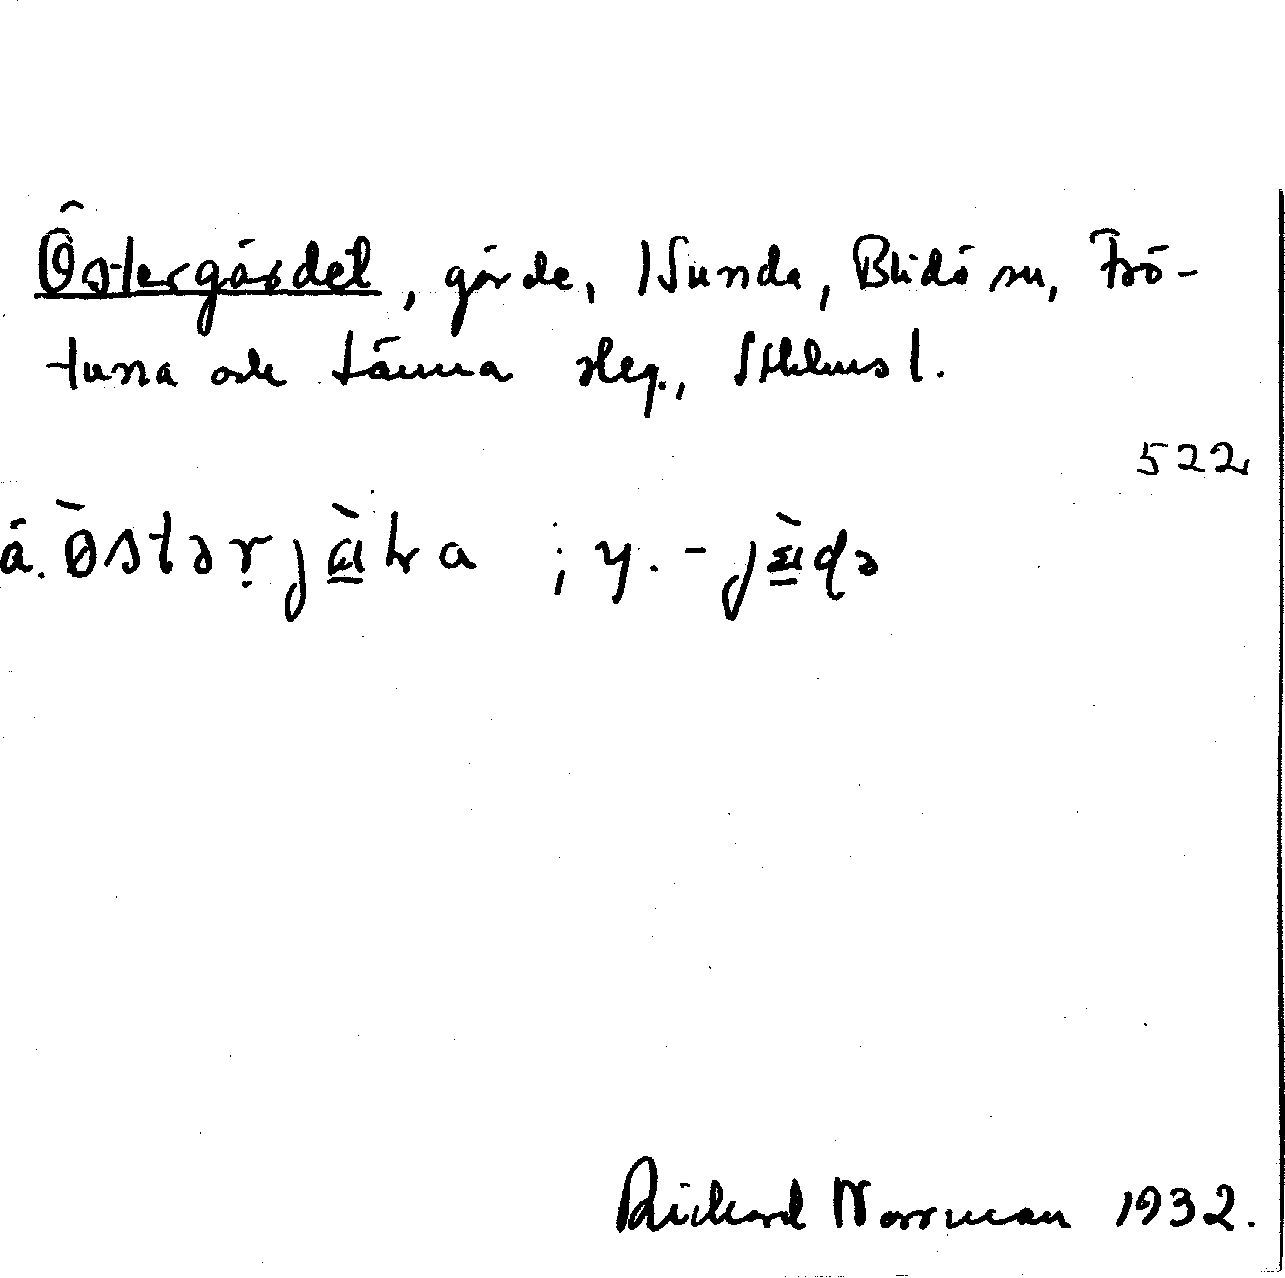 Östergärdet, gärde, Sunda, Blidö sn, Frö-
tuna och Länna skg., Sthlms l.
522
ä. östər ; y.
Rickard Norrman 1932.